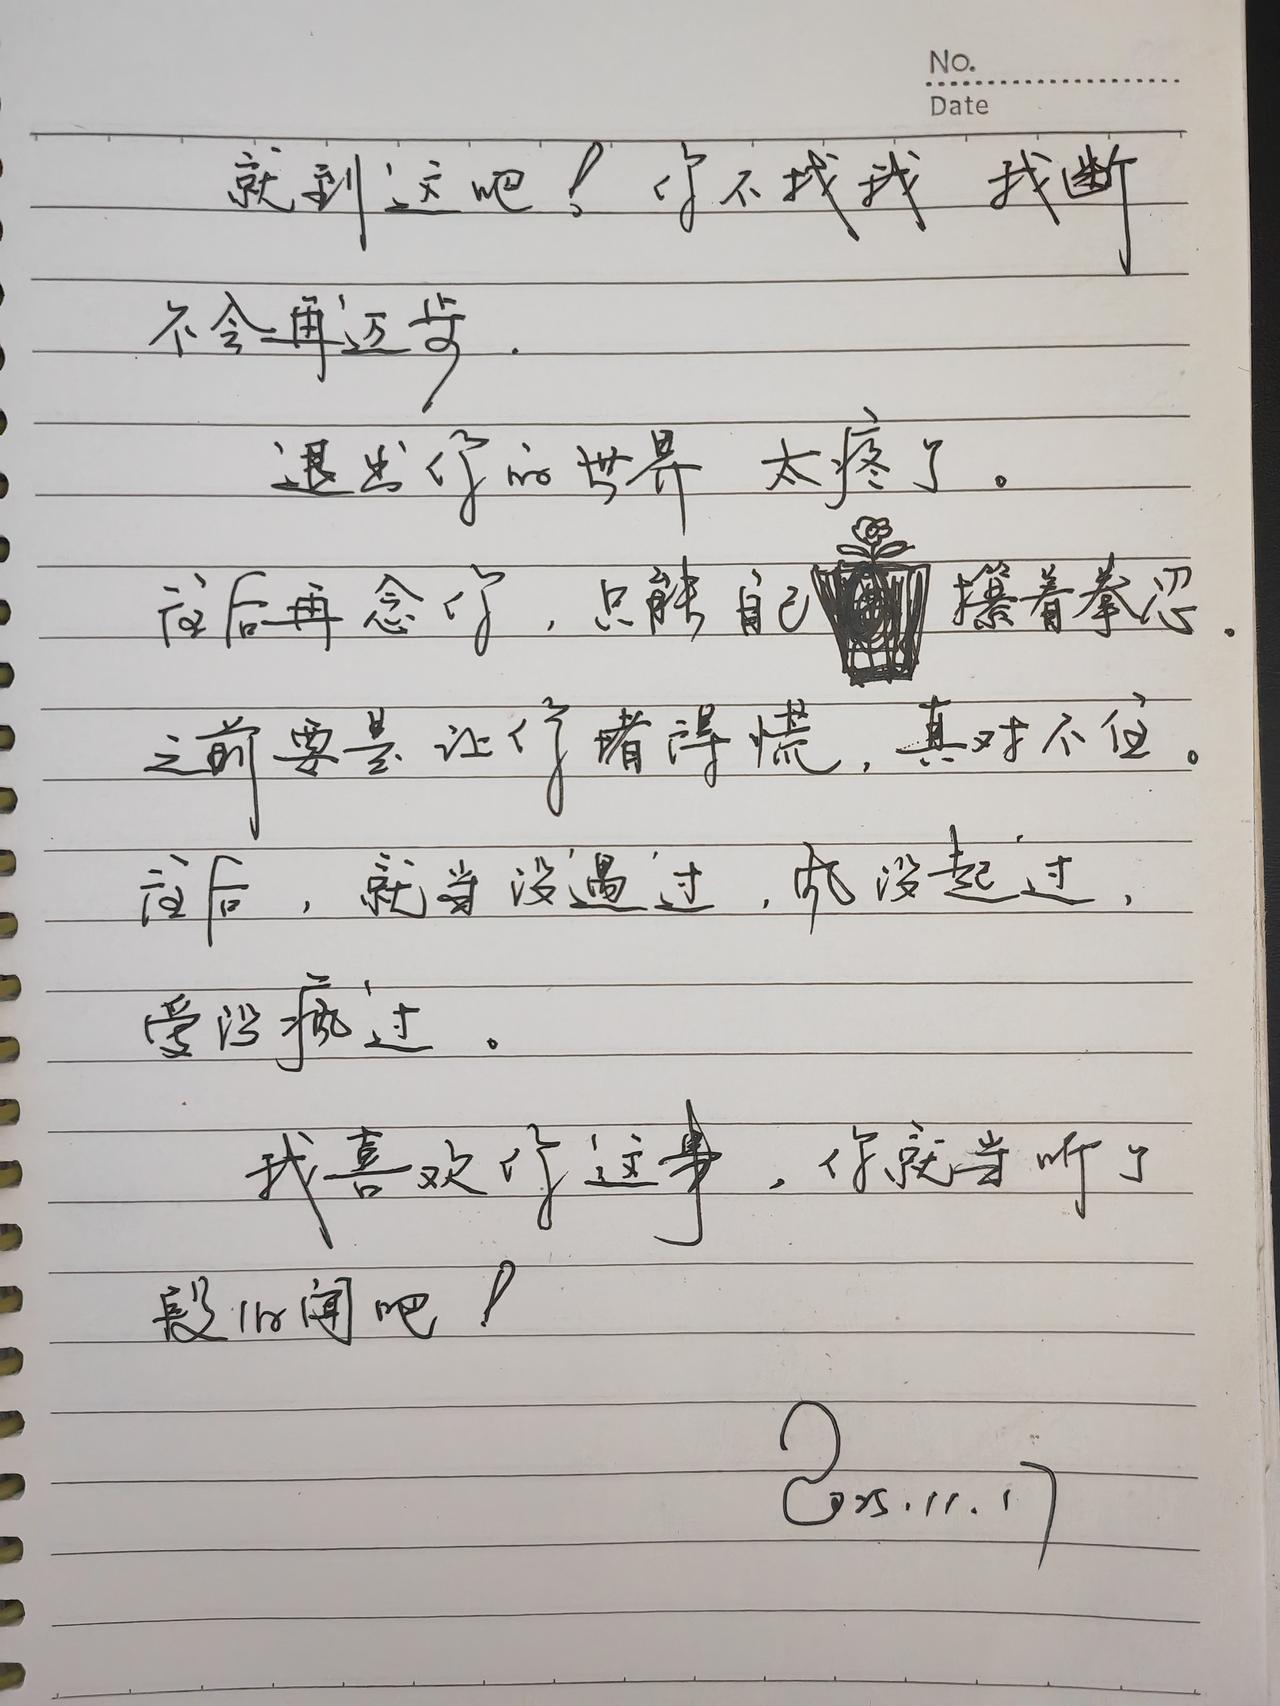 No.
Date
就到这吧！你不找我 我断
不会再迈步.
退出你的世界 太疼了。
往后再念你，只能自己攥着拳忍.
之前要是让你堵得慌，真对不住。
往后，就当没遇过，风没起过，
爱没疯过。
我喜欢你这事，你就当听了
段旧闻吧！
2025.11.17